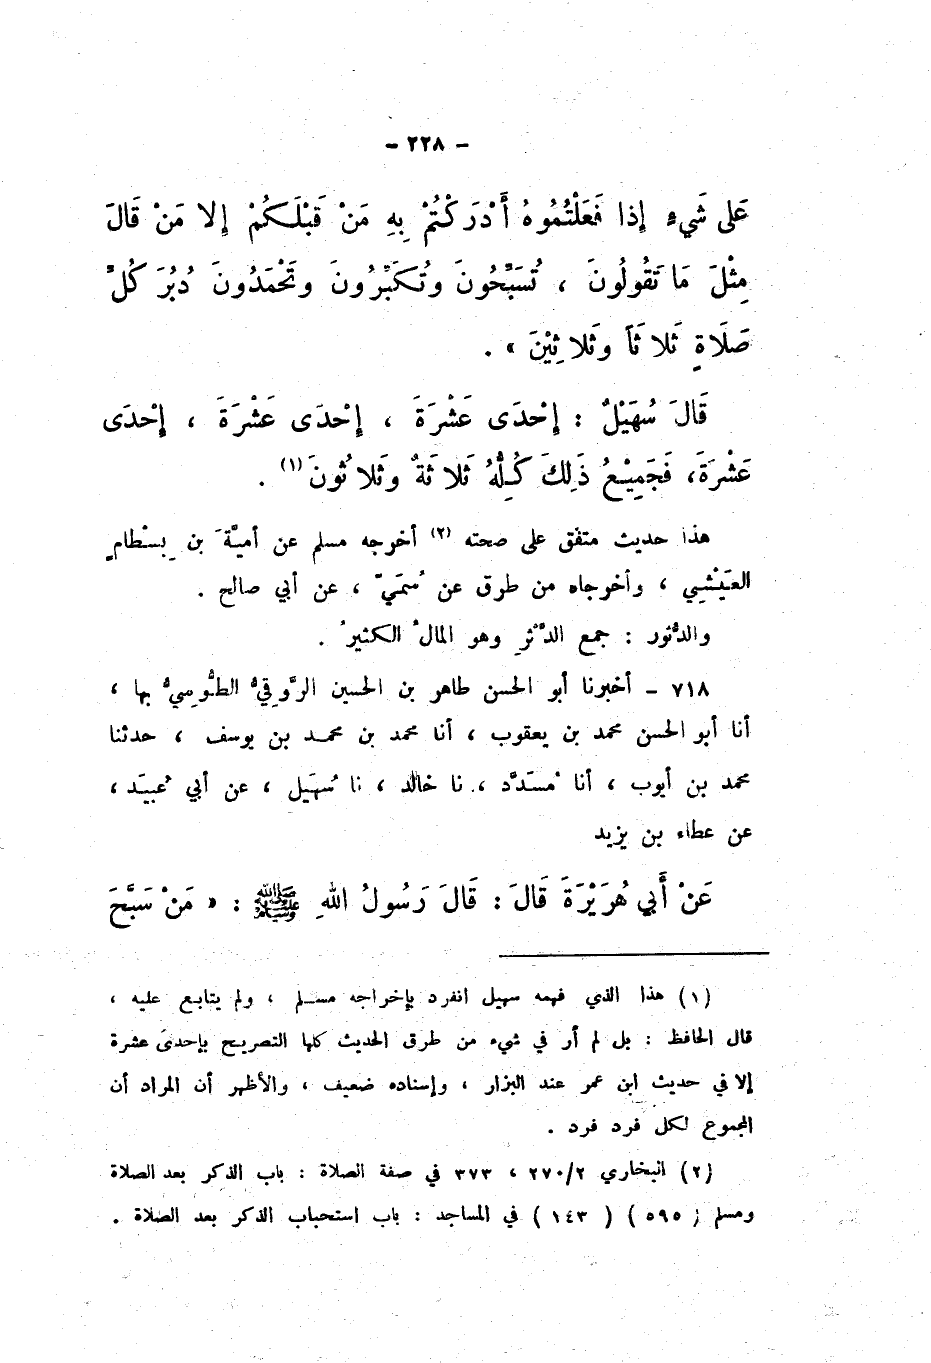 - ٢٢٨ -
عَلى شَيءٍ إذا فَعَلْتُمُوهُ أَدْرَكْتُمْ بِهِ مَنْ قَبْلَكُمْ إلا مَنْ قَالَ
مِثْلَ مَا تَقُولُونَ ، تُسَبِّحُونَ وتُكَبِّرُونَ وتَحْمَدُونَ دُبُرَ كُلِّ
صَلَاةٍ ثَلاثَاً وثَلاثِيْنَ » .
قَالَ سُهَيْلٌ : إحْدَى عَشْرَةَ ، إحْدَى عَشْرَةَ ، إحْدَى
عَشْرَةَ، فَجَمِيْعُ ذَلِكَ كُلِّهُ ثَلاثَةٌ وثَلاثُونَ (١) .
هذا حديث متفق على صحته (٢) أخرجه مسلم عن أميَّةَ بن بِسْطامٍ
العَيْشِي ، وأخرجاه من طرق عن سُمَيّ ، عن أبي صالح .
والدُّثور : جمع الدَّثْرِ وهو المالُ الكثيرُ .
٧١٨ - أخبرنا أبو الحسن طاهر بن الحسين الرَّوقِيُّ الطُّوسِيُّ بها ،
أنا أبو الحسن محمد بن يعقوب ، أنا محمد بن محمد بن يوسف ، حدثنا
محمد بن أيوب ، أنا مُسَدَّد ، نا خالد ، نا سُهَيل ، عن أبي عُبيَد ،
عن عطاء بن يزيد
عَنْ أَبي هُرَيْرَةَ قَالَ : قَالَ رَسُولُ اللهِ ﷺ : « مَنْ سَبَّحَ
(١) هذا الذي فهمه سهيل انفرد بإخراجه مسلم ، ولم يتابع عليه ،
قال الحافظ : بل لم أر في شيء من طرق الحديث كلها التصريح بإحدى عشرة
إلا في حديث ابن عمر عند البزار ، وإسناده ضعيف ، والأظهر أن المراد أن
المجموع لكل فرد فرد .
(٢) البخاري ٢/‏٢٧٠ ، ٣٧٣ في صفة الصلاة : باب الذكر بعد الصلاة
ومسلم ( ٥٩٥ ) ( ١٤٣ ) في المساجد : باب استحباب الذكر بعد الصلاة .